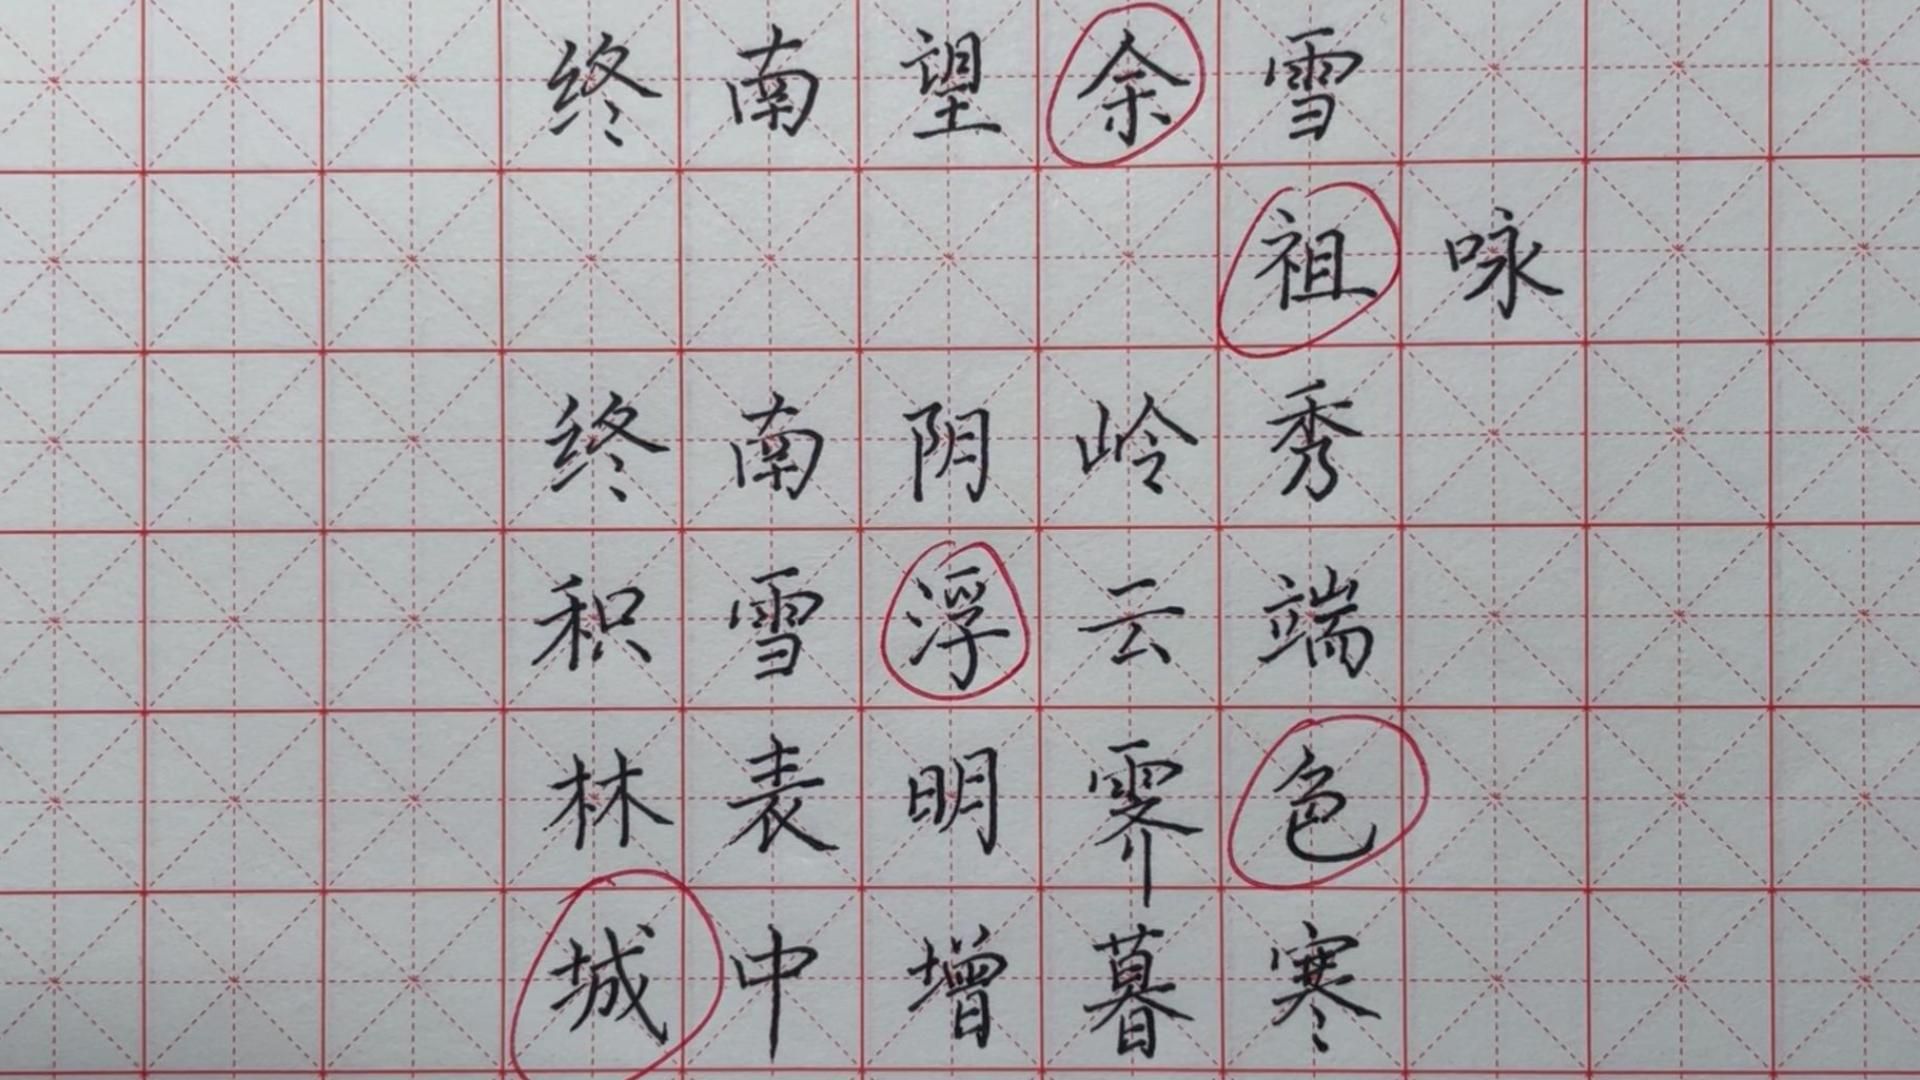 终南望余雪
祖咏
终南阴岭秀
积雪浮云端
林表明霁色
城中增暮寒